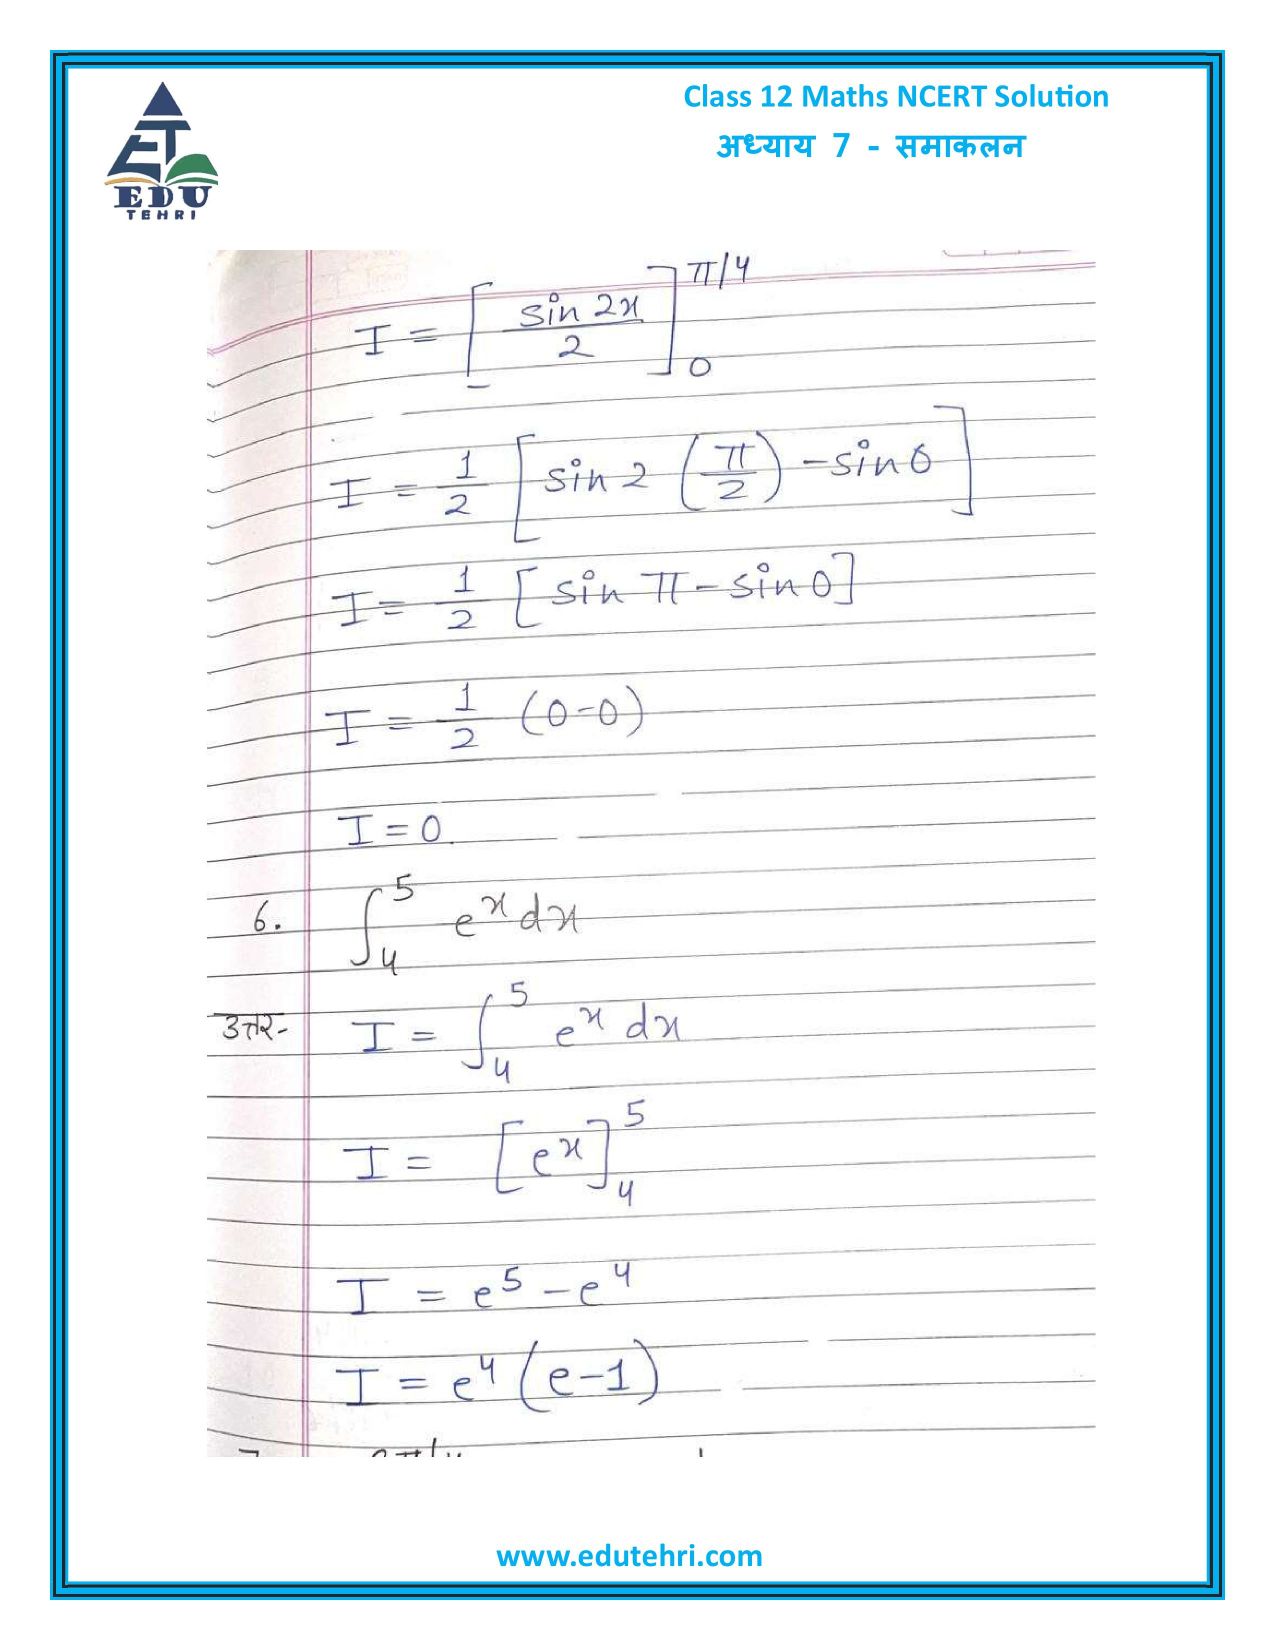 Class 12 Maths NCERT Solution
अध्याय 7 - समाकलन
EDU
TEHRI
I = [sin 2x / 2]₀^π/4
I = 1/2 [sin 2 (π/2) - sin 0]
I = 1/2 [sin π - sin 0]
I = 1/2 (0-0)
I = 0.
6. ∫₄⁵ eˣ dx
उत्तर- I = ∫₄⁵ eˣ dx
I = [eˣ]₄⁵
I = e⁵ - e⁴
I = e⁴ (e-1)
www.edutehri.com